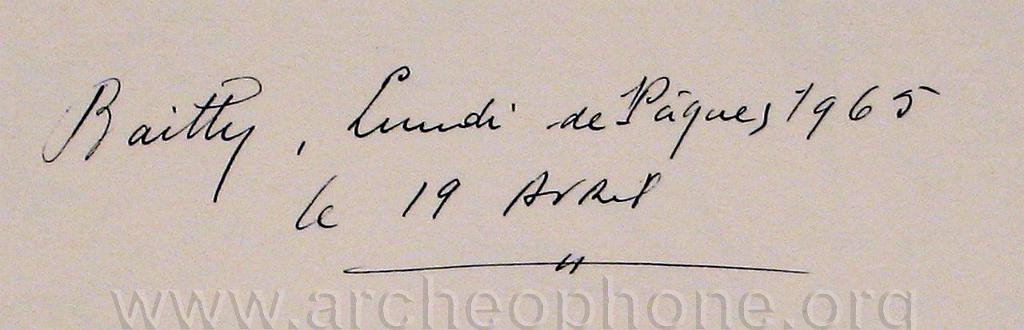 Bailly, Lundi de Pâques 1965
le 19 Avril
www.archeophone.org